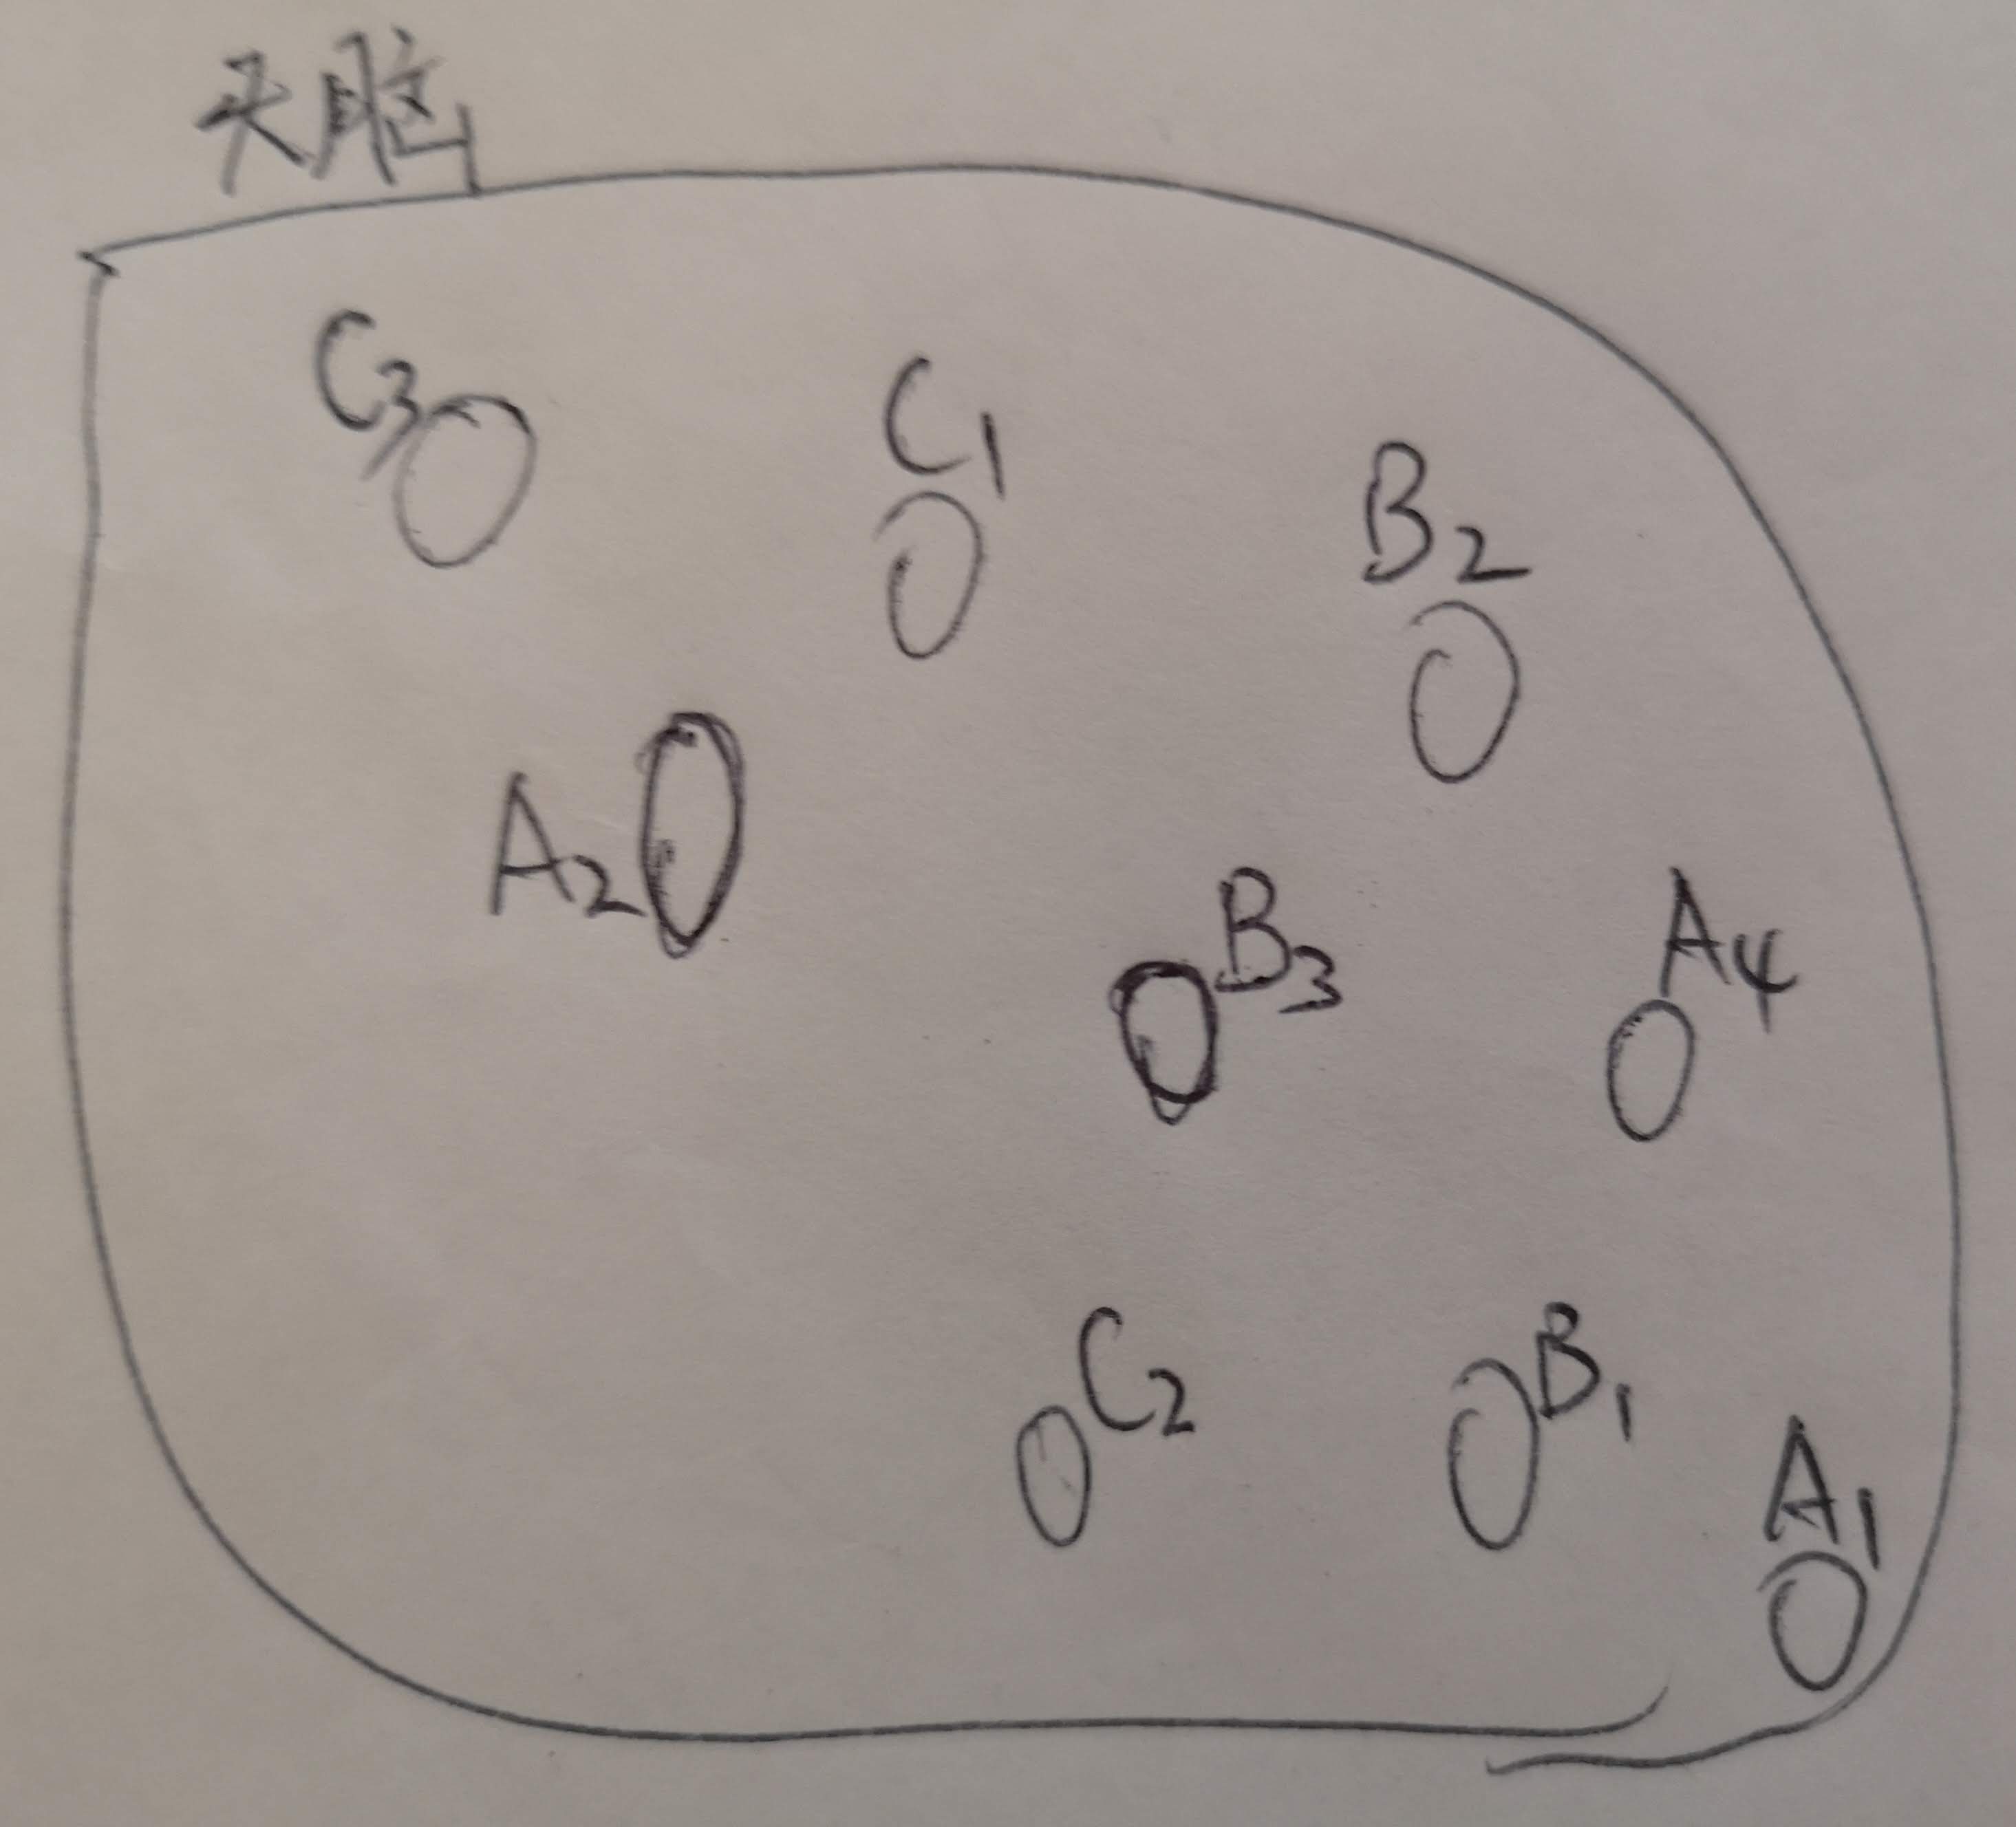 头脑
C3
C1
B2
A2
B3
A4
C2
B1
A1